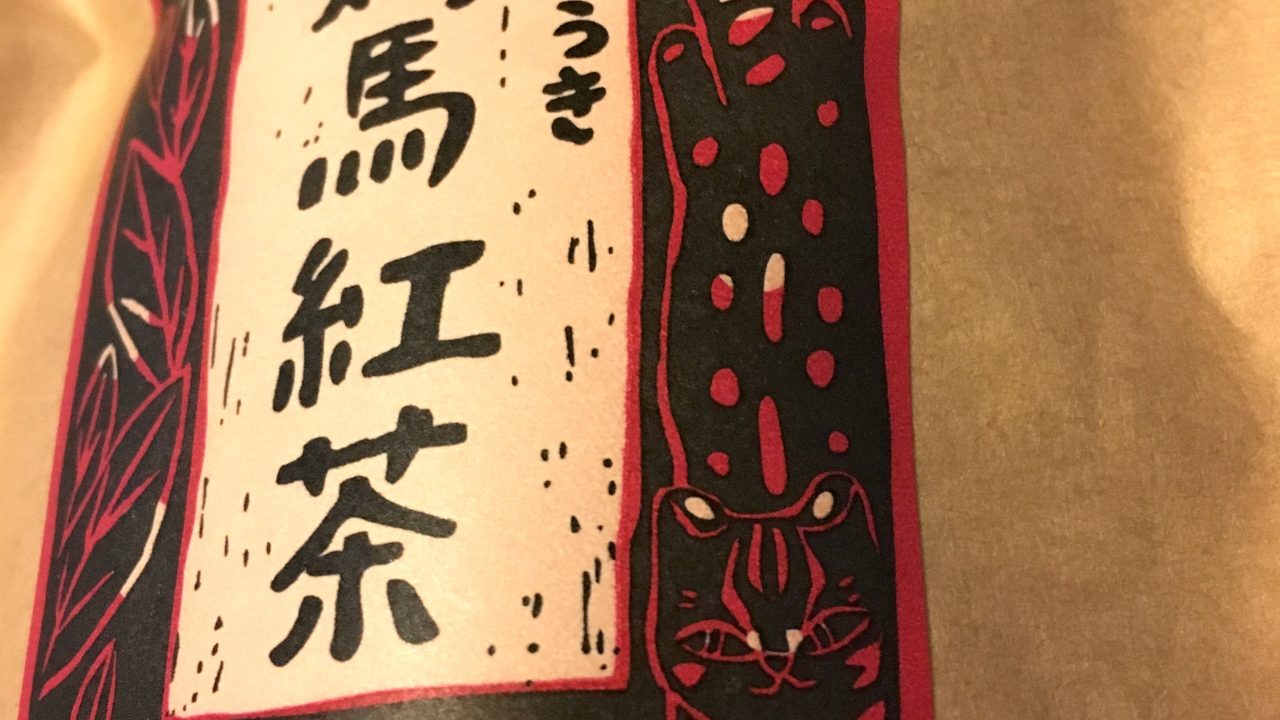 うき
馬紅茶